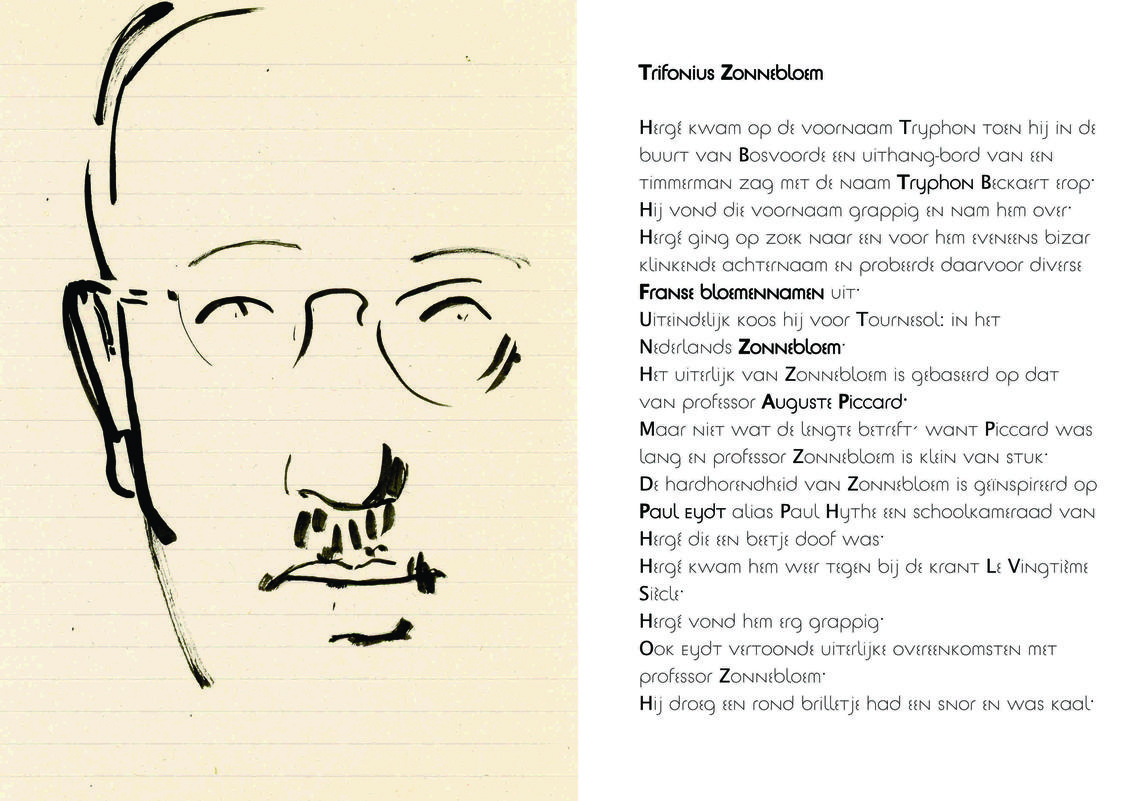 Trifonius Zonnebloem
Hergé kwam op de voornaam Tryphon toen hij in de
buurt van Bosvoorde een uithang-bord van een
timmerman zag met de naam Tryphon Beckaert erop·
Hij vond die voornaam grappig en nam hem over·
Hergé ging op zoek naar een voor hem eveneens bizar
klinkende achternaam en probeerde daarvoor diverse
Franse bloemennamen uit·
Uiteindelijk koos hij voor Tournesol: in het
Nederlands Zonnebloem·
Het uiterlijk van Zonnebloem is gebaseerd op dat
van professor Auguste Piccard·
Maar niet wat de lengte betreft´ want Piccard was
lang en professor Zonnebloem is klein van stuk·
De hardhorendheid van Zonnebloem is geïnspireerd op
Paul eydt alias Paul Hythe een schoolkameraad van
Hergé die een beetje doof was·
Hergé kwam hem weer tegen bij de krant Le Vingtième
Siècle·
Hergé vond hem erg grappig·
Ook eydt vertoonde uiterlijke overeenkomsten met
professor Zonnebloem·
Hij droeg een rond brilletje had een snor en was kaal·